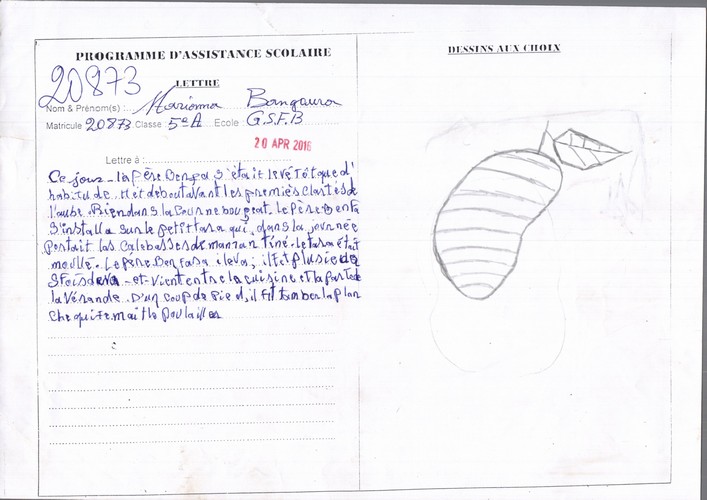 PROGRAMME D'ASSISTANCE SCOLAIRE
20873
LETTRE
Nom & Prénom(s) : Marianna Bangoura
Matricule 20873 Classe 5e A Ecole G.S.F.B
20 APR 2016
Lettre à :
Ce jour-la Père Benfa s'était levé tôt que d'
habitude. Il et debout avant les premiès clartés de
l'aube. Rien dans la cour ne bougeat. Le Père Benfa
s'installa sur le petit tara qui, dans la journée
portait las calebasses de maman tiné. Le tara était
mouillé. Le Père Benfa
fois et vient entre la cuisine et la parte de
la véranda. D'un coup de pied, il fit tomber la plan
che qui fermait le Poulailler
DESSINS AUX CHOIX